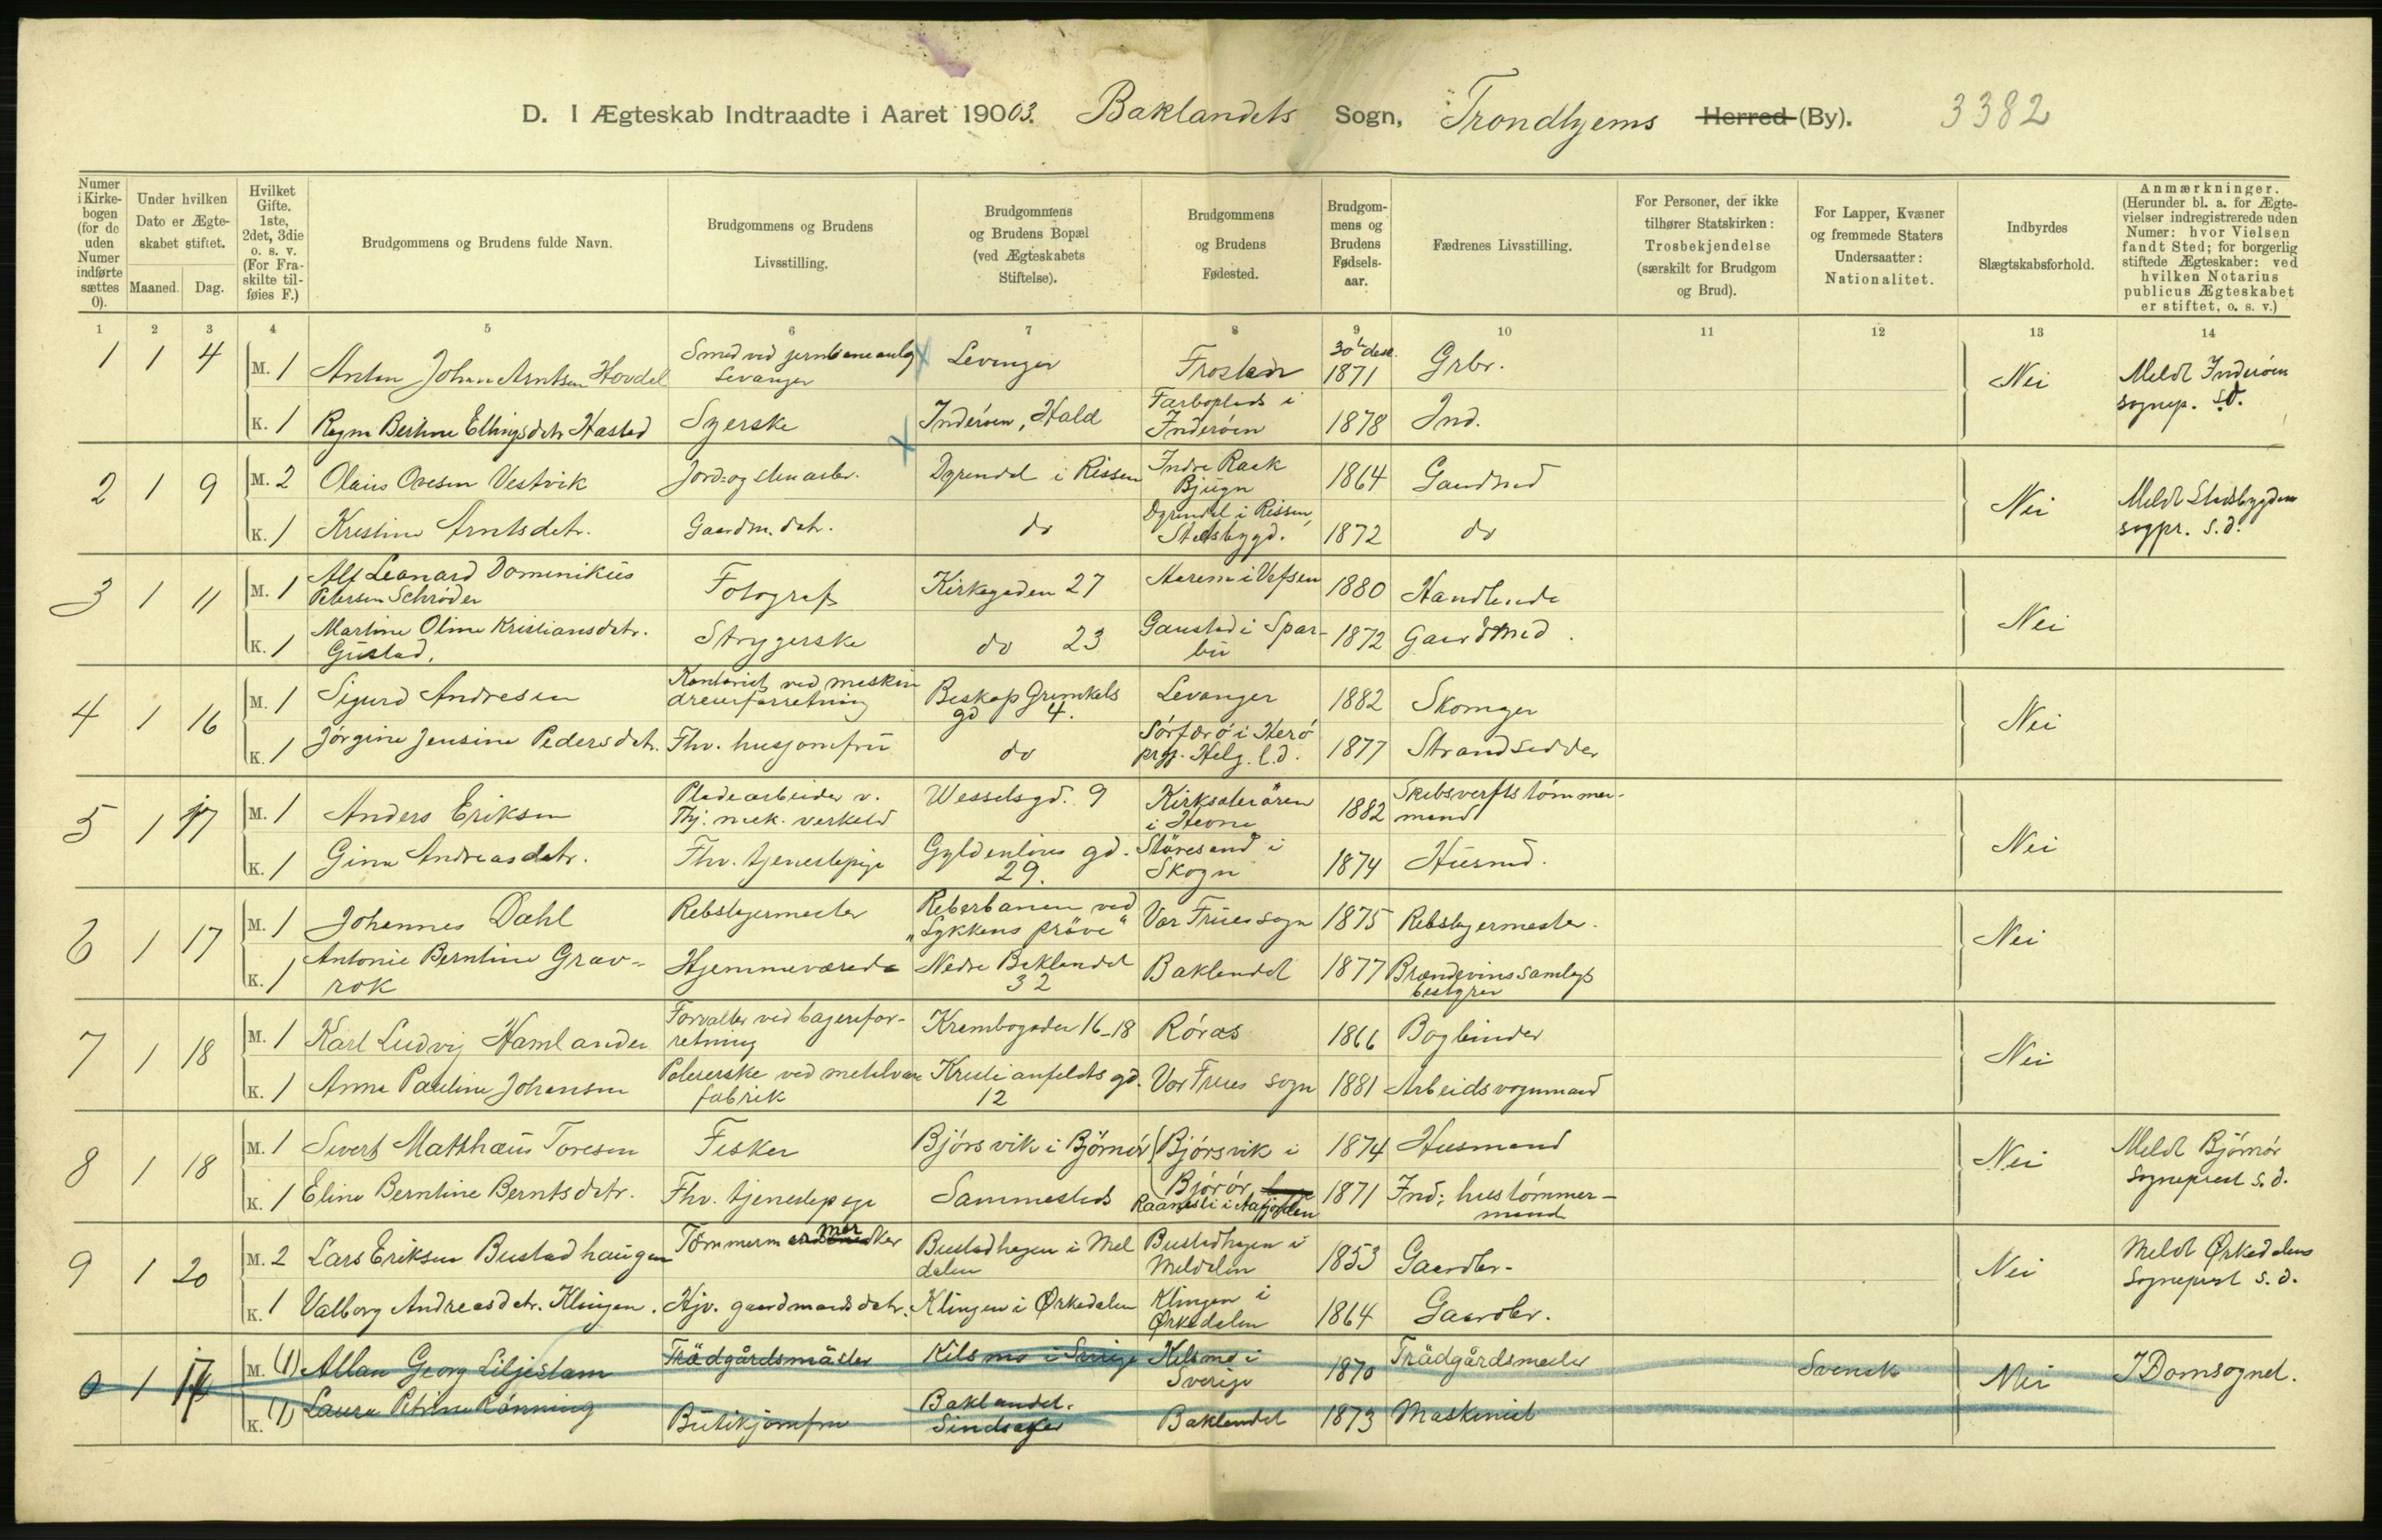 D. I Ægteskab Indtraadte i Aaret 1903. Baklandets Sogn, Trondhjems Herred (By). 3382
Numer i Kirkebogen (for de uden Numer indførte sættes 0).
Under hvilken Dato er Ægteskabet stiftet.
Maaned. Dag.
Hvilket Gifte. 1ste, 2det, 3die o. s. v. (For Fraskilte tilføies F.)
Brudgommens og Brudens fulde Navn.
Brudgommens og Brudens Livsstilling.
Brudgommens og Brudens Bopæl (ved Ægteskabets Stiftelse).
Brudgommens og Brudens Fødested.
Brudgommens og Brudens Fødselsaar.
Fædrenes Livsstilling.
For Personer, der ikke tilhører Statskirken: Trosbekjendelse (særskilt for Brudgom og Brud).
For Lapper, Kvæner og fremmede Staters Undersaatter: Nationalitet.
Indbyrdes Slægtskabsforhold.
Anmærkninger. (Herunder bl. a. for Ægtevielser indregistrerede uden Numer: hvor Vielsen fandt Sted; for borgerlig stiftede Ægteskaber: ved hvilken Notarius publicus Ægteskabet er stiftet, o. s. v.)
1 2 3 4 5 6 7 8 9 10 11 12 13 14
1 1 4 M. 1 Anton Johan Arntsen Hovdal Smed ved jernbaneanlæg Levanger Levanger Frosten 30te dese. 1871 Grbr. Nei Meldt Inderøen sognep. s.d.
K. 1 Bertine Ellingsdatr Hasted Syerske Inderøen, Hald i Inderøen 1878 Ind.
2 1 9 M. 2 Olaus Olsen Vestvik Jord- og stenarbr. Dyrendal i Rissen Indre Raak Bjugn 1864 Gaardmd Nei Meldt Stadsbygden sogpr. s.d.
K. 1 Kristine Arntsdatr. Gaardm. datr. do Dyrendal i Rissen, Stadsbygd. 1872 do
3 1 11 M. 1 Alf Leonard Dominikus Petersen Schrøder Fotograf Kirkegaden 27 i Vefsen 1880 Handlende Nei
K. 1 Martine Oline Kristiansdatr. Gustad. Strygerske do 23 Gaustad i Sparbu 1872 Gaardmd.
4 1 16 M. 1 Sigurd Andresen Kontorist ved maskindreierforretning Beskop Grimkels gd 4. Levanger 1882 Skomager Nei
K. 1 Jørgine Jensine Pedersdatr. Fhv. husjomfru do Sørherø i Herø prgj. Helg. l.d. 1877 Strandsidder
5 1 17 M. 1 Anders Eriksen Pladearbeider v. Thj. mek. verksted Wesselsgd. 9 Kirksæterøren i Hevne 1882 Skibsverftstømmermand Nei
K. 1 Gina Andreasdatr. Fhv. tjenestepige Gyldenløves gd. 29. Støresand i Skogn 1874 Husmd.
6 1 17 M. 1 Johannes Dahl Rebslagermester Reberbanen ved "Lykkens prøve" Vor Frues sogn 1875 Rebslagermester. Nei
K. 1 Antonie Berntine Gravrok Hjemmeværende Nedre Baklandet 32 Baklandet 1877 Brændevinssamlags bestyrer
7 1 18 M. 1 Karl Ludvig Hamlander Forvalter ved bagerforretning Krambogaden 16-18 Røraas 1866 Bogbinder Nei
K. 1 Anna Pauline Johansen Polererske ved metalvarefabrik Kristianfeldts gd. 12 Vor Frues sogn 1881 Arbeidsvognmand
8 1 18 M. 1 Sivert Matthæus Toresen Fisker Bjørsvik i Bjørnør Bjørsvik i Bjørør 1874 Husmand Nei Meldt Bjørnør Sogneprest s.d.
K. 1 Eline Berntine Berntsdatr. Fhv. tjenestepige Sammesteds Raanesli i Aafjorden 1871 Ind: hustømmermand
9 1 20 M. 2 Lars Eriksen Bustadhaugen Bustadhagen i Meldalen Bustadhagen i Meldalen 1853 Gaardbr. Nei Meldt Ørkedalens Sogneprest s.d.
K. 1 Valborg Andreasdatr. Klingen. Hjv. gaardmandsdatr. Klingen i Ørkedalen Klingen i Ørkedalen 1864 Gaardbr.
0 1 17 M. (1) Allan Georg Liljestam Trädgårdsmäster Kilsmo i Sverige Kilsmo i Sverige 1870 Trädgårdsmester Svensk Nei I Domsognet.
K. (1) Laura Petrine Rönning Butikjomfru Baklandet. Sindsaker Baklandet 1873 Maskinist